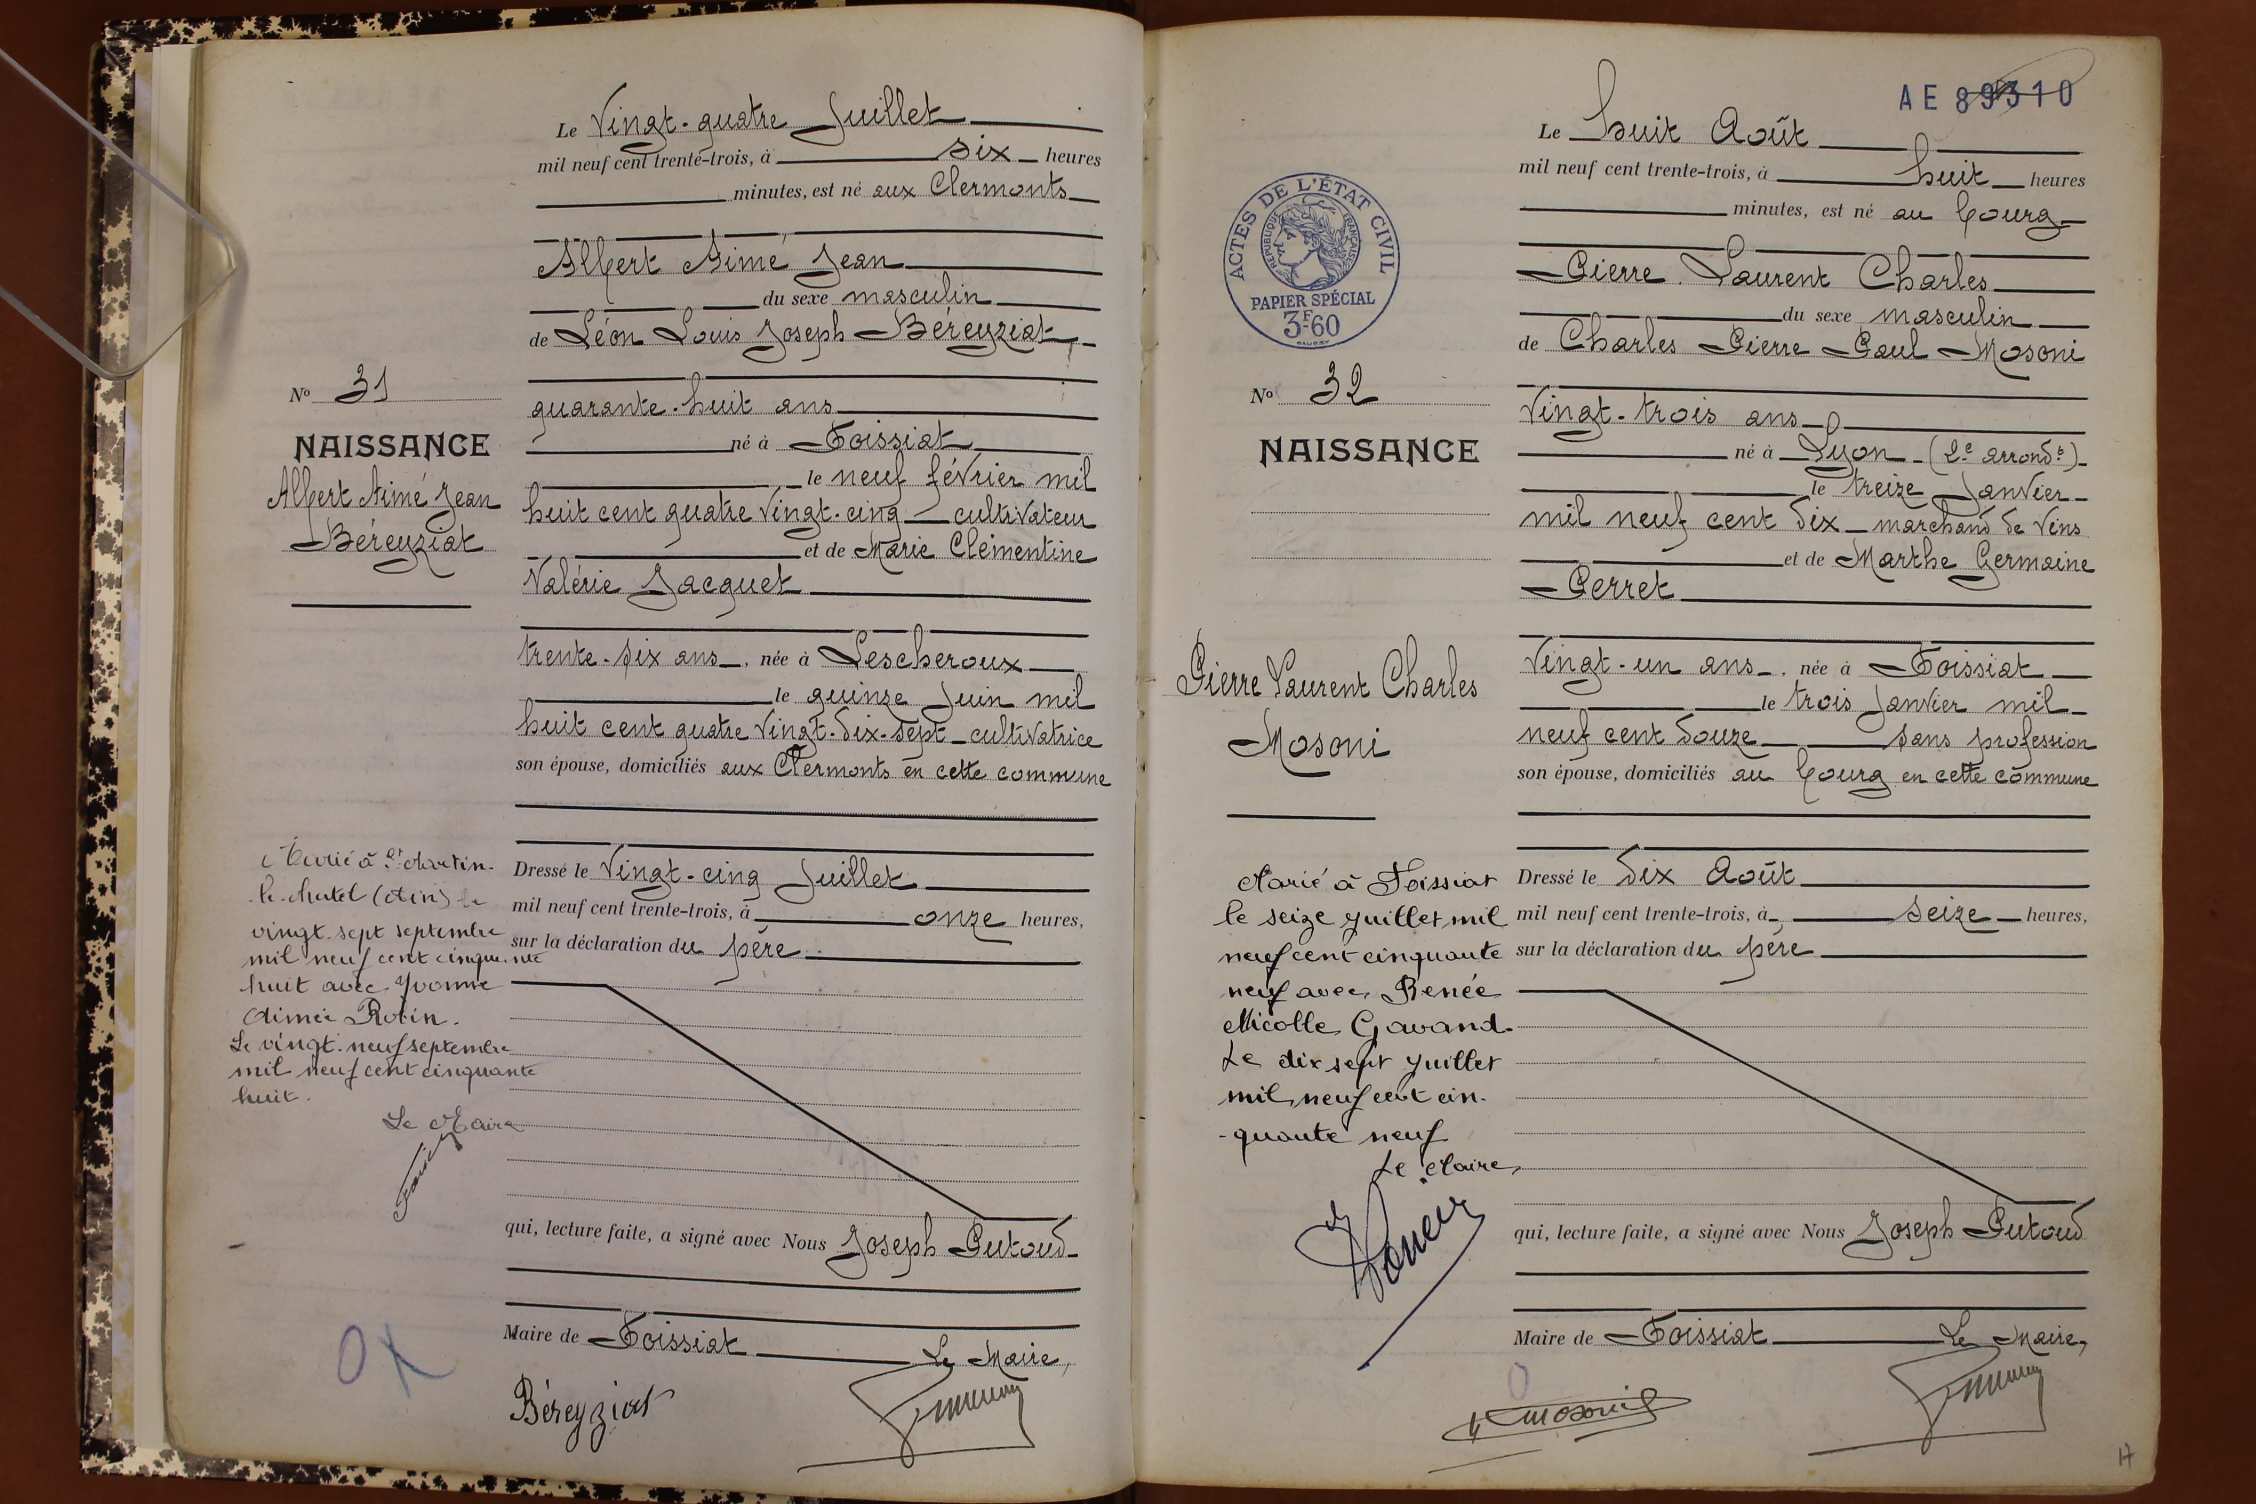 Le Vingt-quatre Juillet
mil neuf cent trente-trois, à six heures
minutes, est né aux Clermonts
Albert Aimé Jean
du sexe masculin
de Léon Louis Joseph Béreyziat
quarante-huit ans
né à Foissiat
le neuf février mil
huit cent quatre vingt-cinq cultivateur
et de Marie Clémentine
Valérie Jacquet
trente-six ans, née à Lescheroux
le quinze Juin mil
huit cent quatre vingt-dix-sept cultivatrice
son épouse, domiciliés aux Clermonts en cette commune
Dressé le Vingt-cinq Juillet
mil neuf cent trente-trois, à onze heures,
sur la déclaration du père
qui, lecture faite, a signé avec Nous Joseph Putoud
Maire de Foissiat Le Maire,
Béreyziat
No 31
NAISSANCE
Albert Aimé Jean
Béreyziat
Marié à St Martin-
le-chatel (Ain) le
vingt-sept septembre
mil neuf cent cinquante
huit avec Yvonne
Aimée Robin.
Le vingt-neuf septembre
mil neuf cent cinquante
huit.
Le Maire
AE 89310
Le huit Août
mil neuf cent trente-trois, à huit heures
minutes, est né au bourg
Pierre Laurent Charles
du sexe masculin
de Charles Pierre Paul Mosoni
Vingt-trois ans
né à Lyon (2e arrondt)
le treize Janvier
mil neuf cent dix marchand de Vins
et de Marthe Germaine
Perret
Vingt-un ans, née à Foissiat
le trois Janvier mil
neuf cent douze sans profession
son épouse, domiciliés au bourg en cette commune
Dressé le dix Août
mil neuf cent trente-trois, à seize heures,
sur la déclaration du père
qui, lecture faite, a signé avec Nous Joseph Putoud
Maire de Foissiat Le Maire,
Mosoni
ACTES DE L'ÉTAT CIVIL
RÉPUBLIQUE FRANÇAISE
PAPIER SPÉCIAL
3F60
No 32
NAISSANCE
Pierre Laurent Charles
Mosoni
Marié à Foissiat
le seize juillet mil
neuf cent cinquante
neuf avec Renée
Nicolle Gavand.
Le dix sept juillet
mil neuf cent cin-
-quante neuf
Le Maire,
17